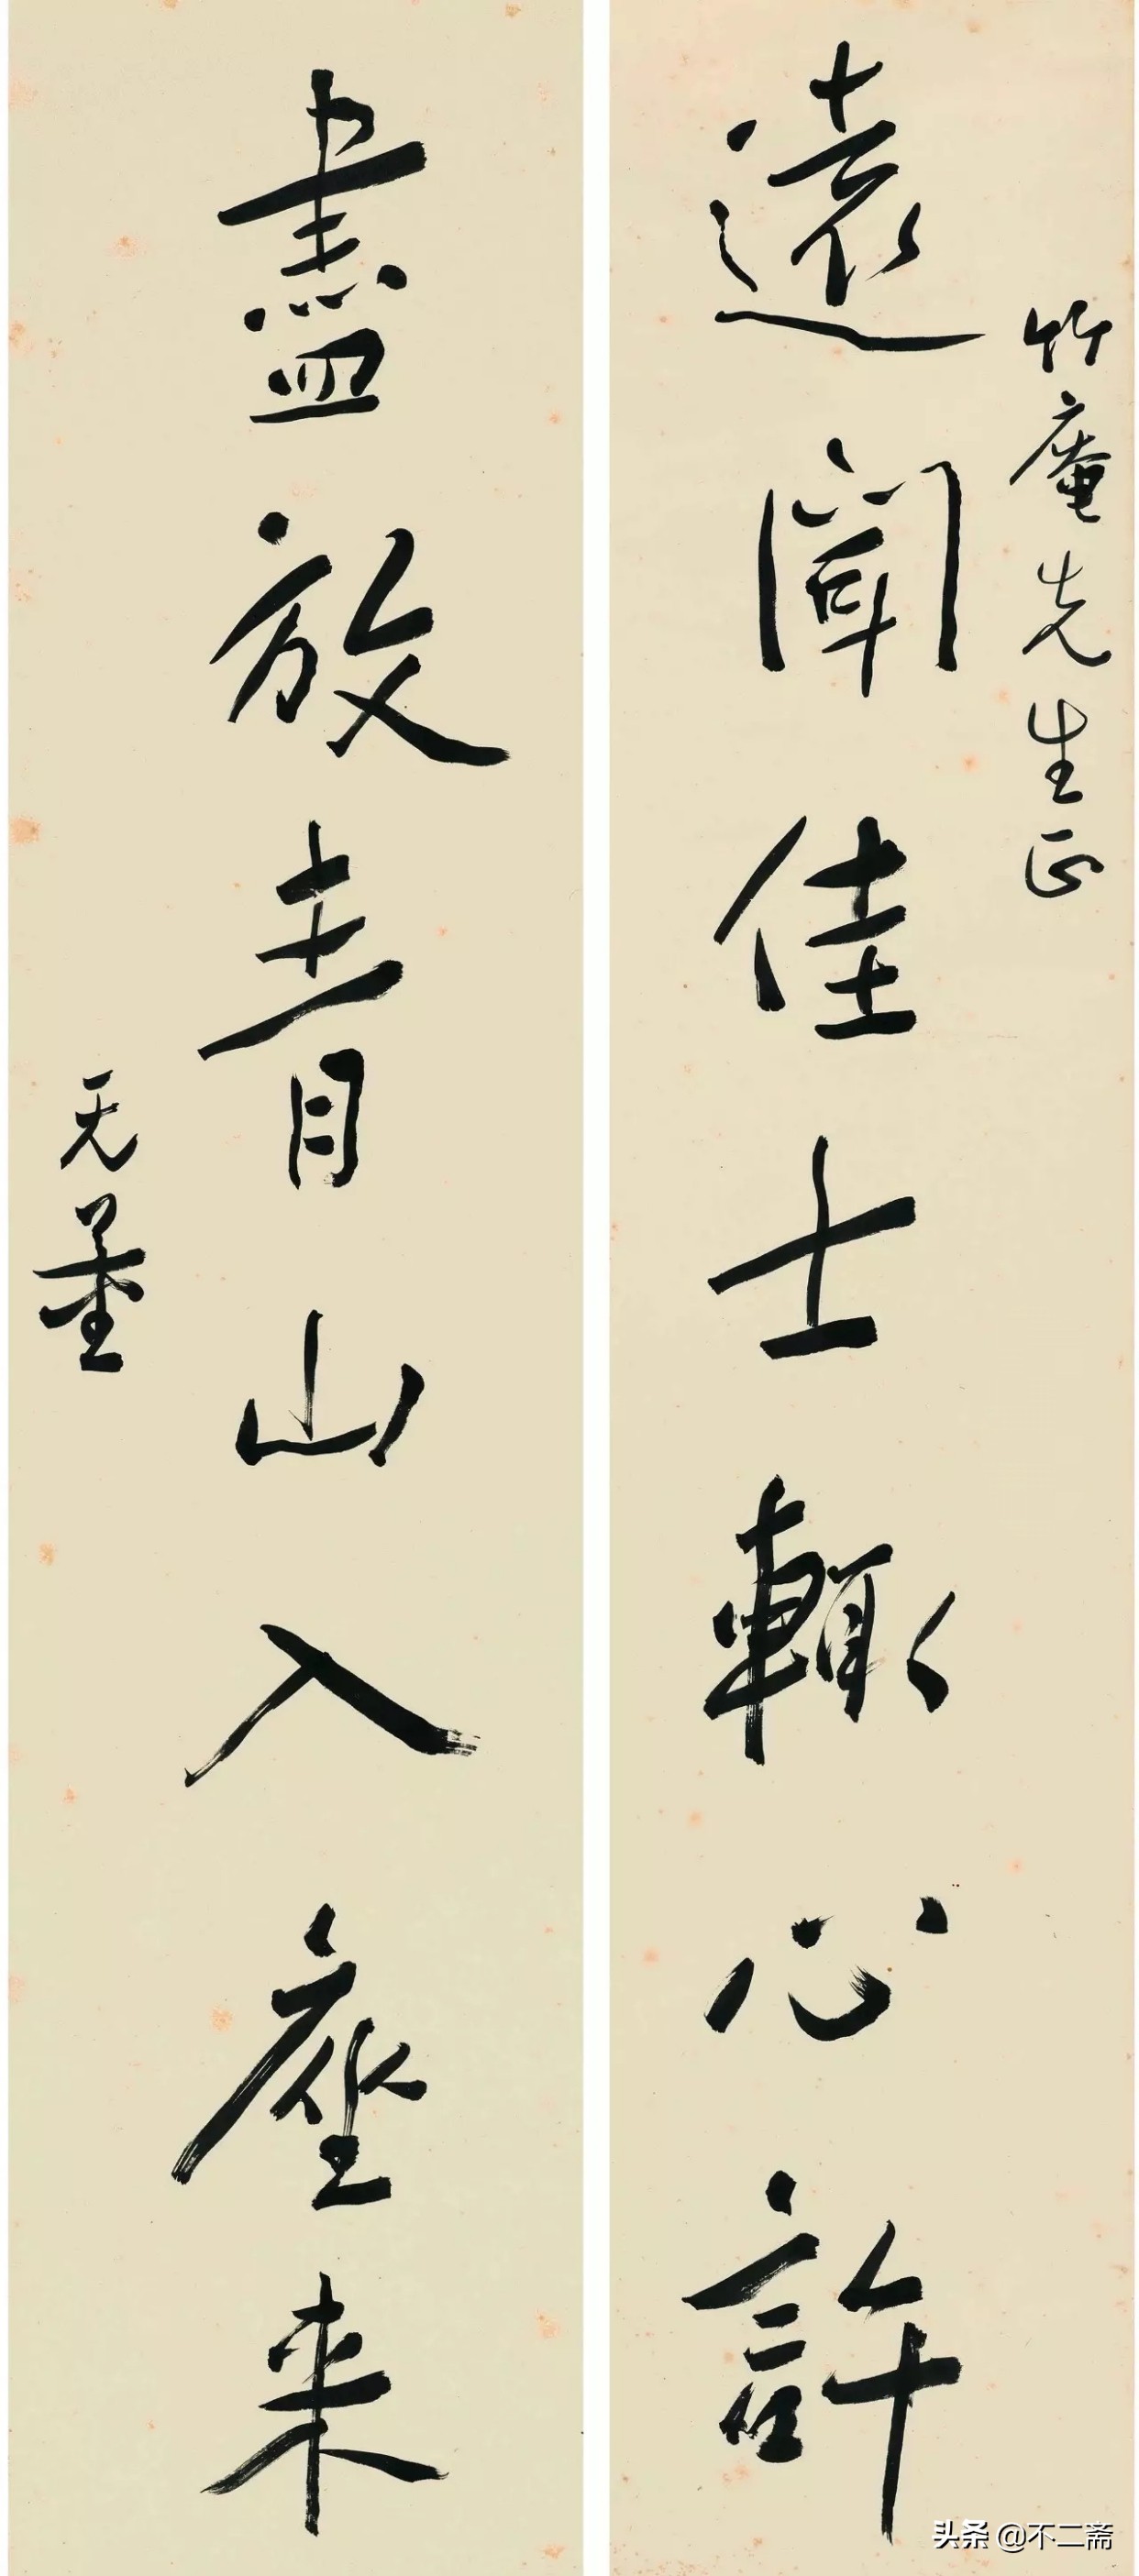 竹庵先生正
遠聞佳士輒心許
盡放青山入座来
无量
头条 @不二斋